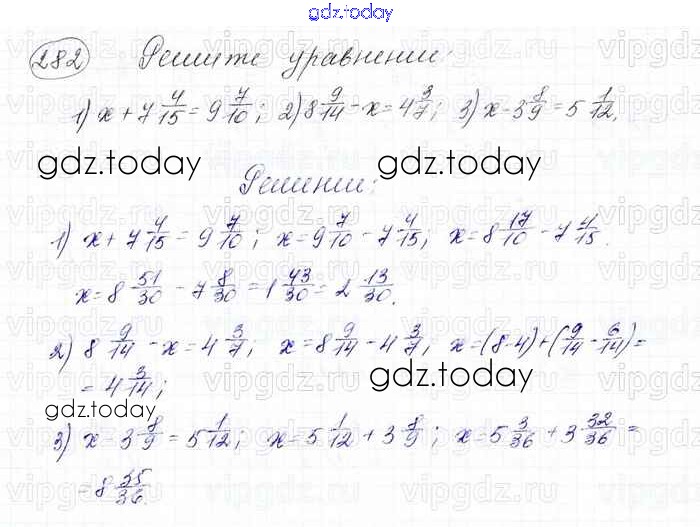 gdz.today
282 Решите уравнении:
1) x + 7 4/15 = 9 7/10; 2) 8 9/14 - x = 4 3/7; 3) x - 3 8/9 = 5 1/12.
gdz.today gdz.today
Решении:
1) x + 7 4/15 = 9 7/10; x = 9 7/10 - 7 4/15; x = 8 17/10 - 7 4/15.
x = 8 51/30 - 7 8/30 = 1 43/30 = 2 13/30.
2) 8 9/14 - x = 4 3/7; x = 8 9/14 - 4 3/7; x = (8-4) + (9/14 - 6/14) =
= 4 3/14;
gdz.today gdz.today
3) x - 3 8/9 = 5 1/12; x = 5 1/12 + 3 8/9; x = 5 3/36 + 3 32/36 =
= 8 35/36.